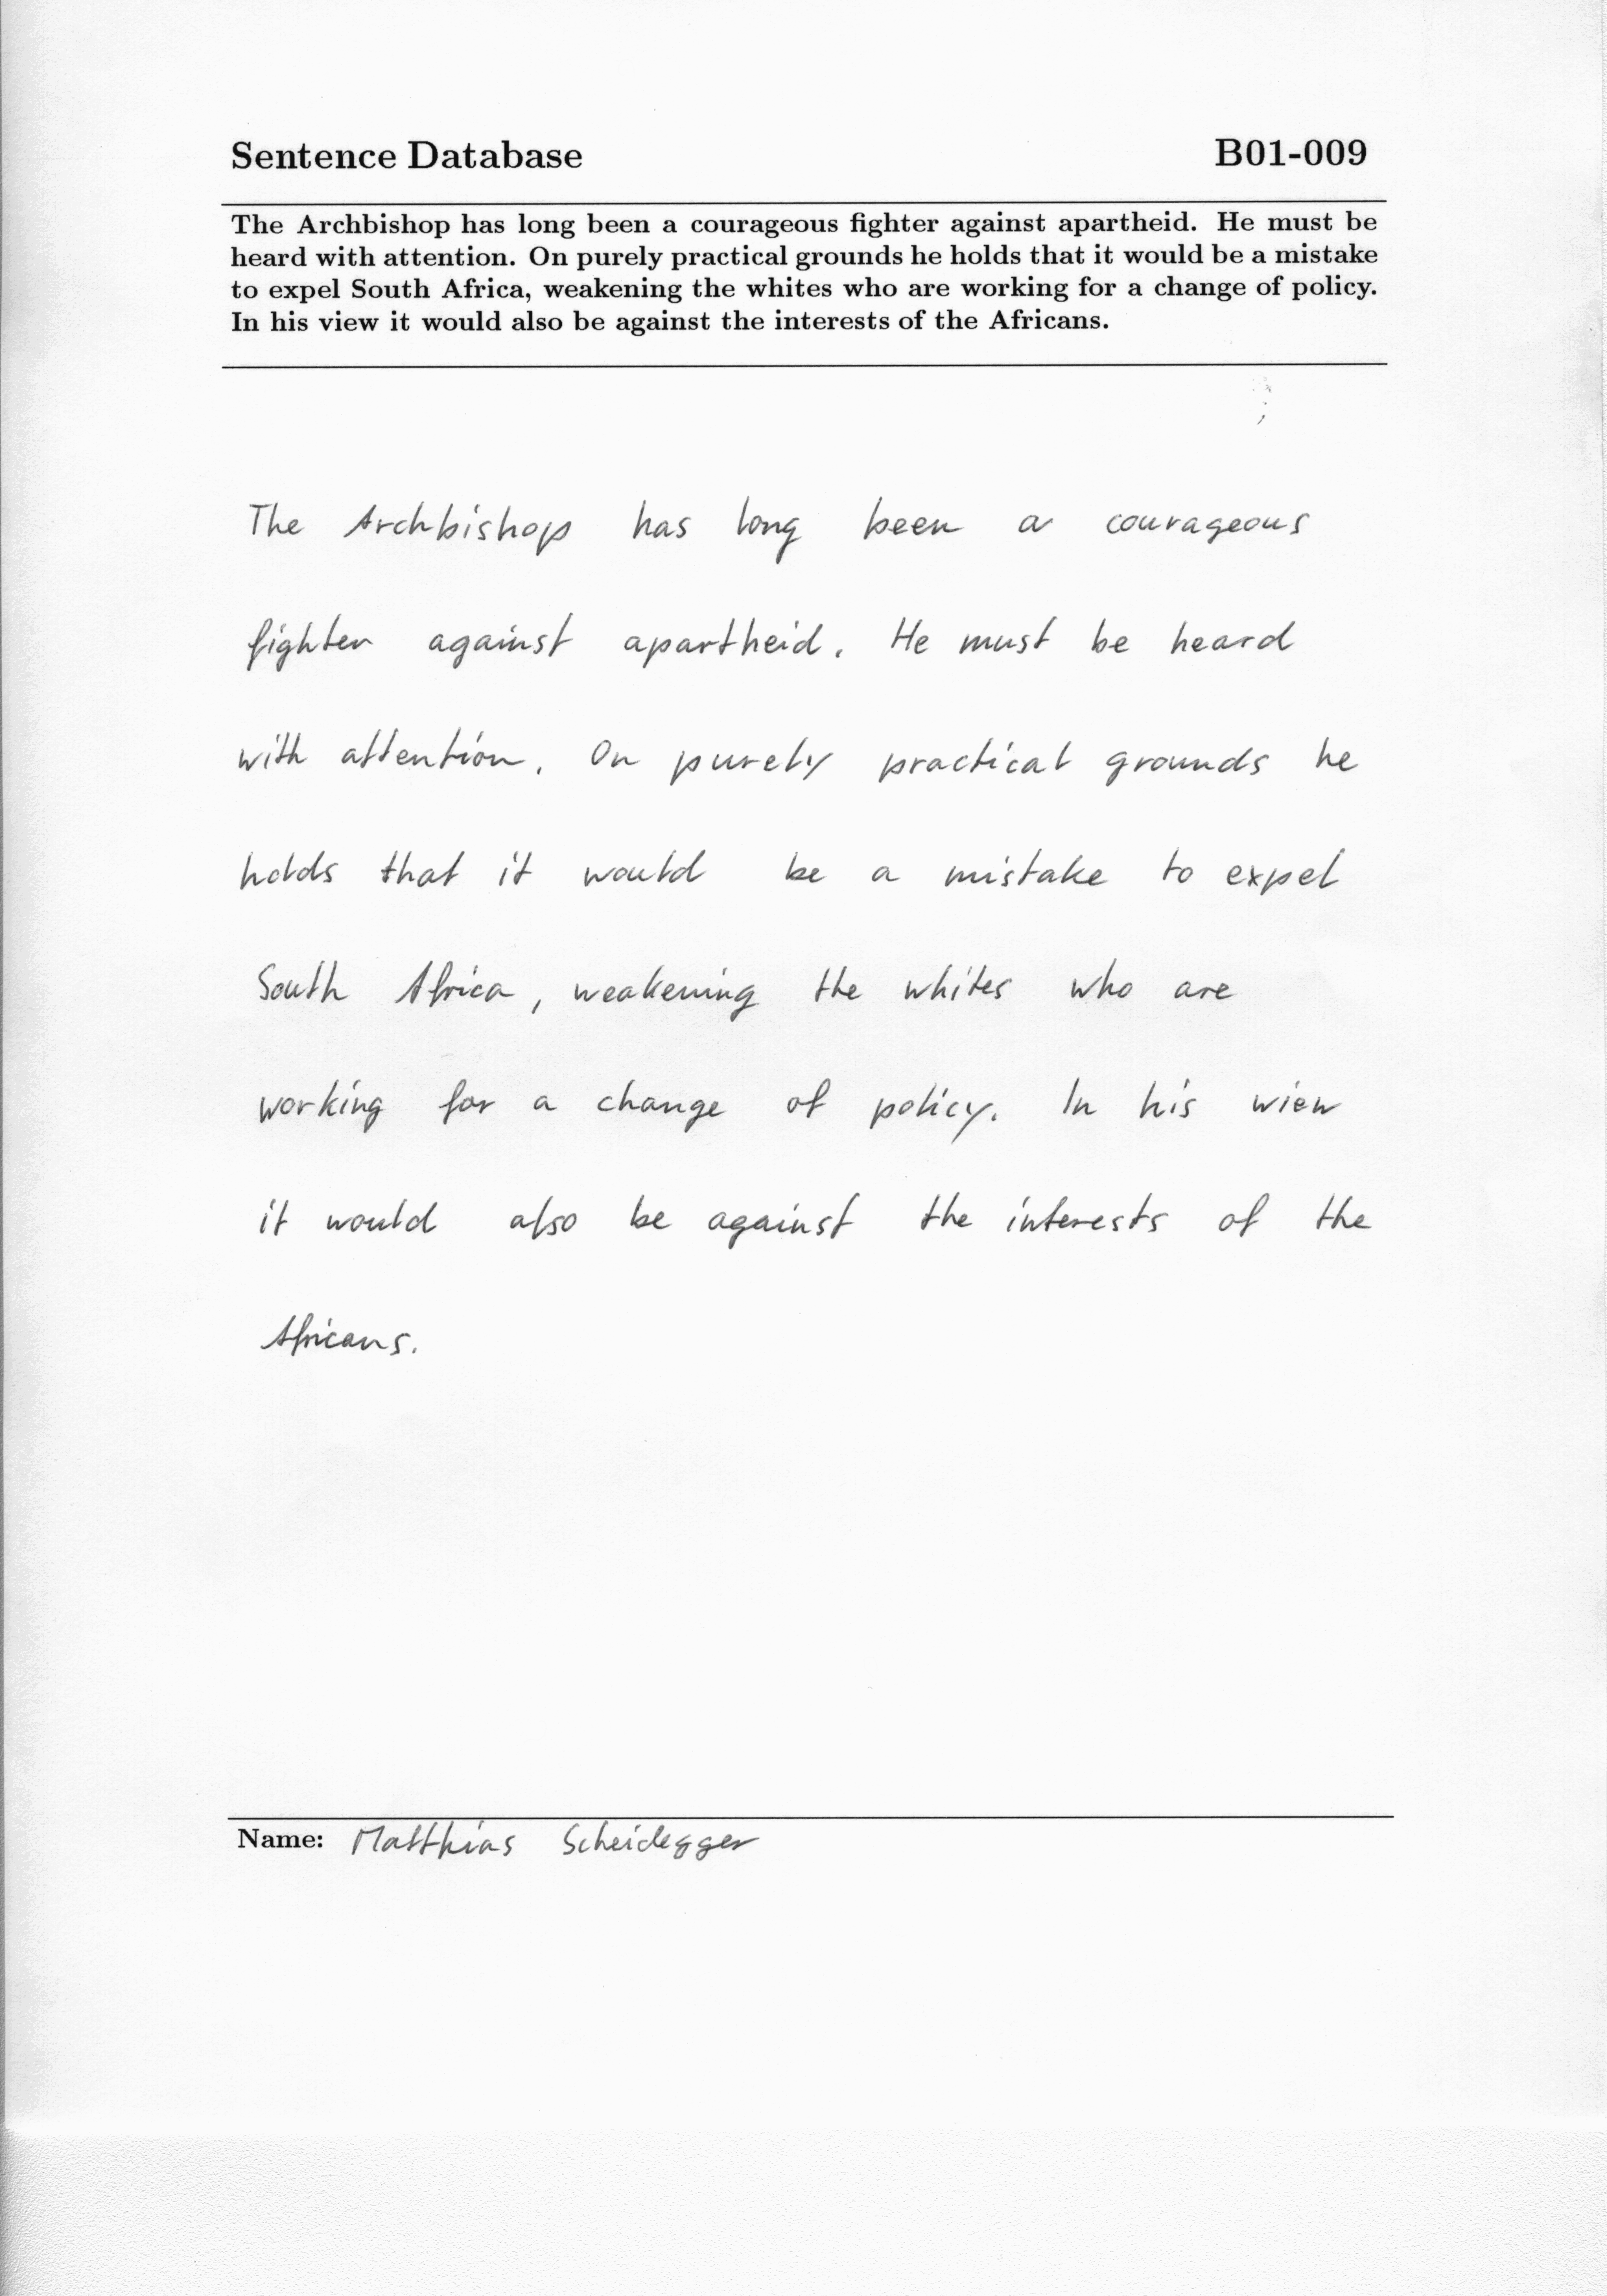 Sentence Database B01-009
The Archbishop has long been a courageous fighter against apartheid. He must be
heard with attention. On purely practical grounds he holds that it would be a mistake
to expel South Africa, weakening the whites who are working for a change of policy.
In his view it would also be against the interests of the Africans.
The Archbishop has long been a courageous
fighter against apartheid. He must be heard
with attention. On purely practical grounds he
holds that it would be a mistake to expel
South Africa, weakening the whites who are
working for a change of policy. In his wiew
it would also be against the interests of the
Africans.
Name: Matthias Scheidegger